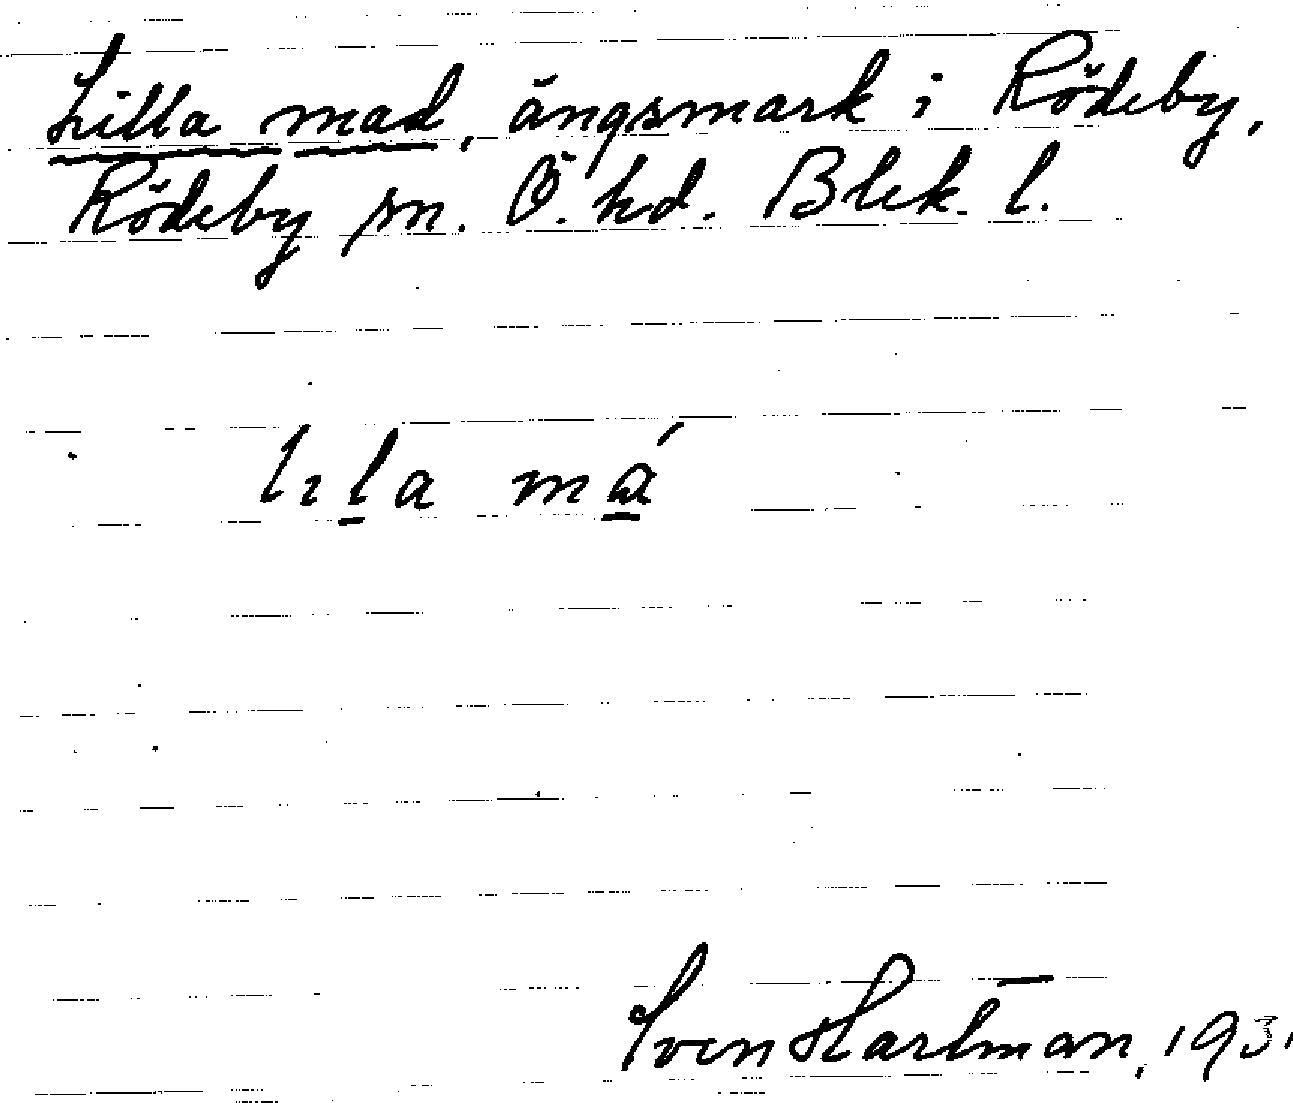 Lilla mad, ängsmark i Rödeby,
Rödeby sn. Ö. hd. Blek. l.
lıla má
Sven Hartman, 1931